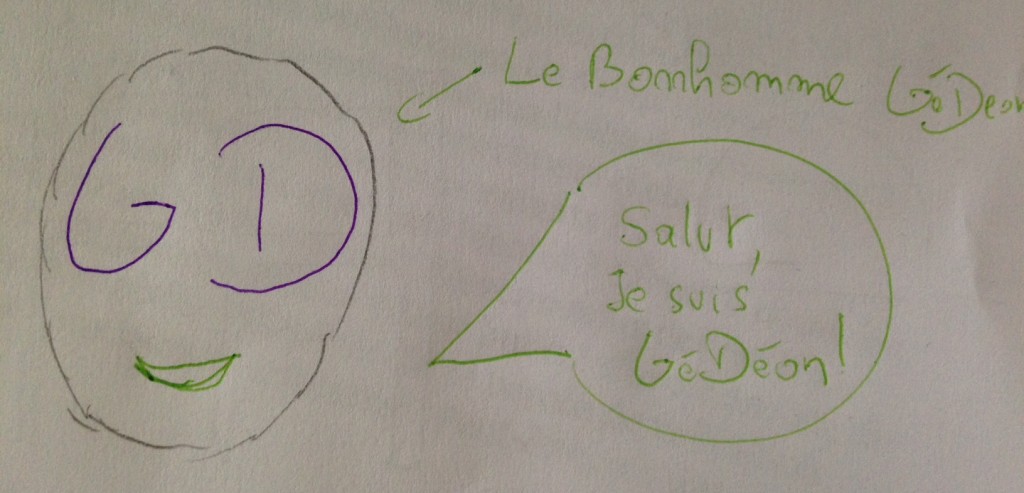 Le Bonhomme GéDéon
G D
Salut,
Je suis
GéDéon!